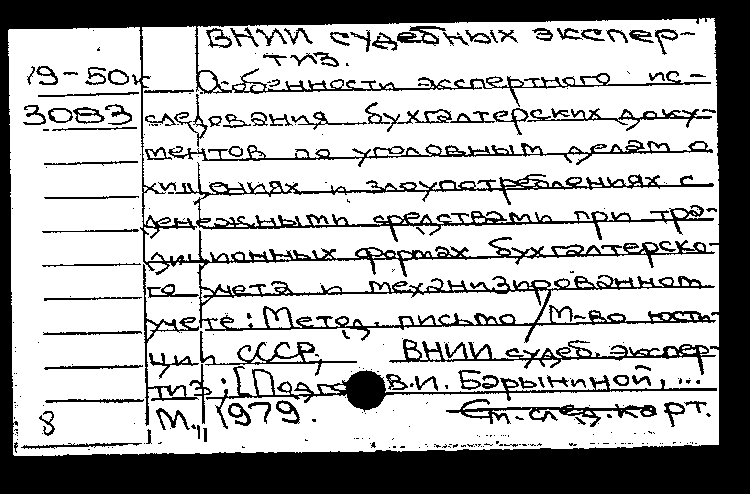 ВНИИ судебных экспер-
тиз.
19-50к Особенности экспертного ис-
3083 следования бухгалтерских доку-
ментов по уголовным делам о
хищениях и злоупотреблениях с
денежными средствами при тра-
диционных формах бухгалтерско-
го учета и механизированном
учете: Метод. письмо / М-во юсти-
ции СССР, ВНИИ судеб. экспер-
тиз; [Подгот. В.И. Барыниной, ...
8 М., 1979. См. след. карт.